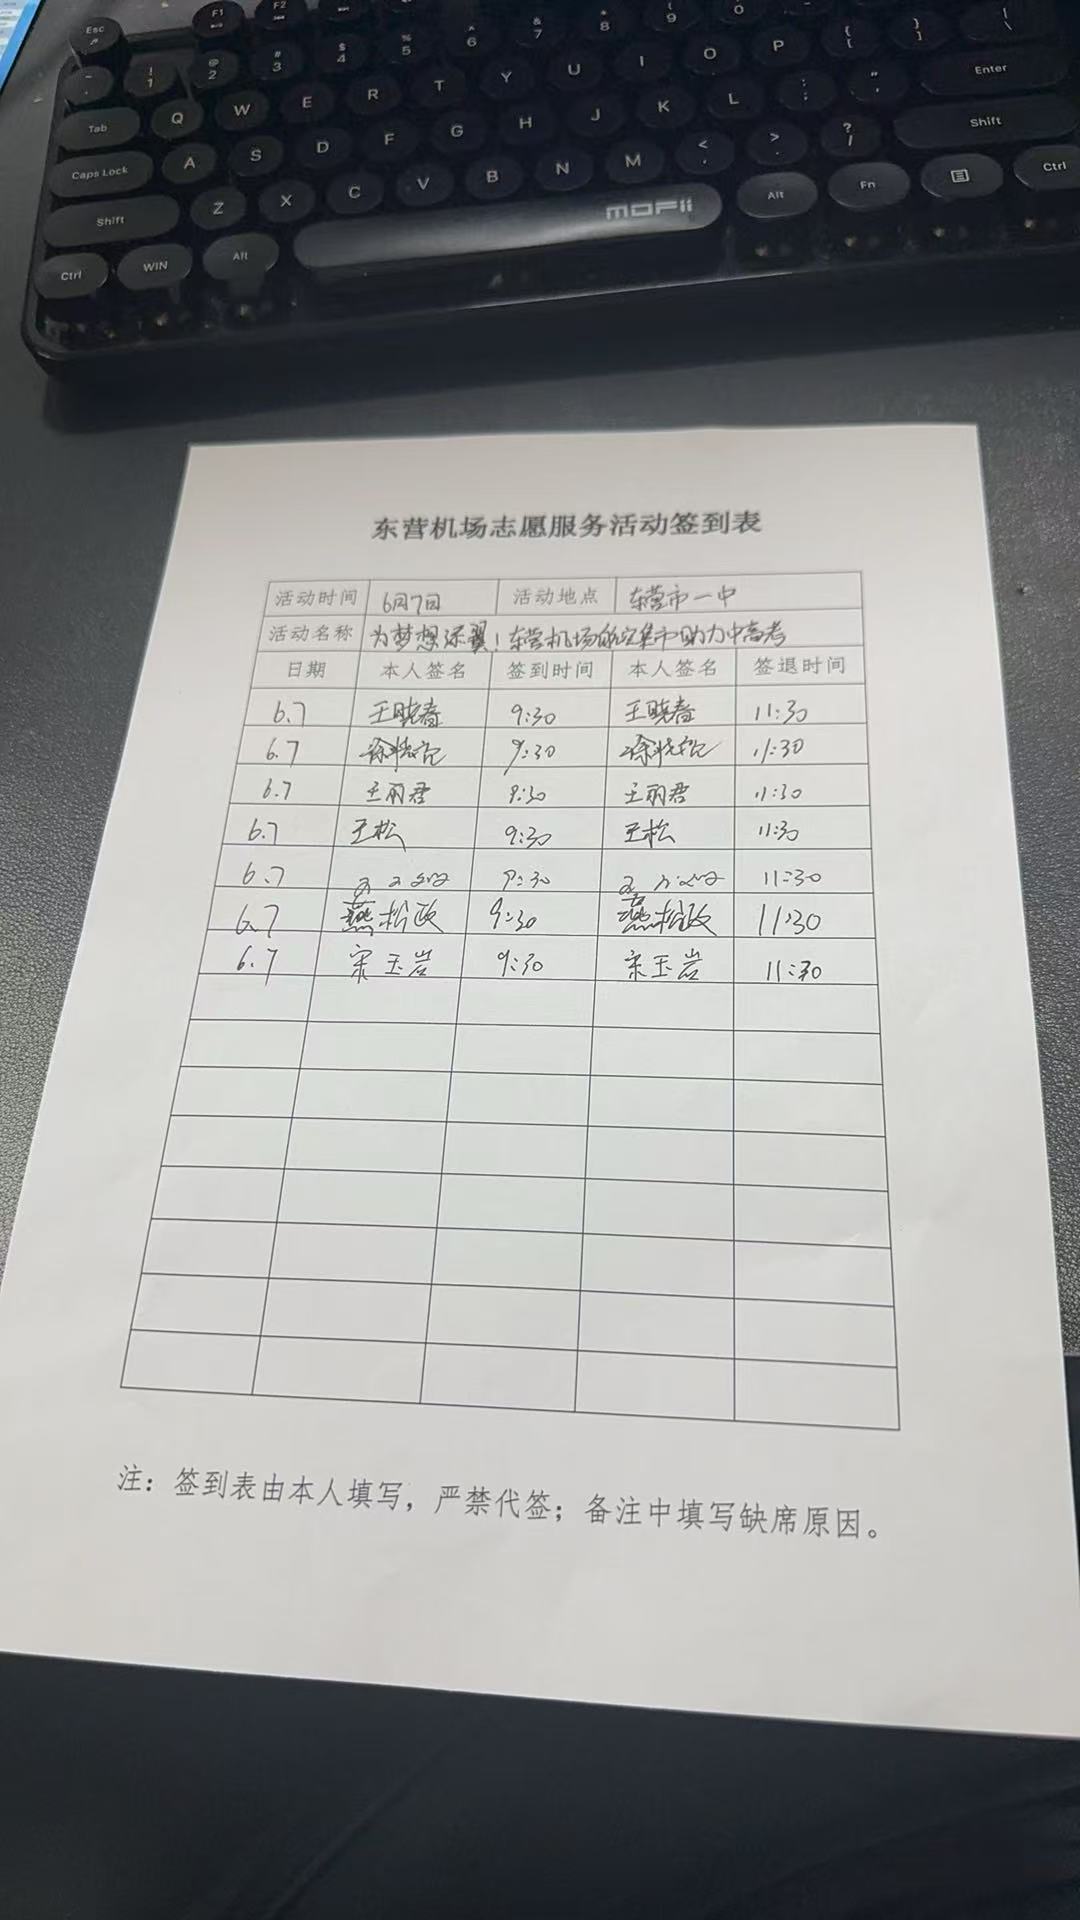 Esc F1 F2
~ ! 1 @ 2 # 3 $ 4 % 5 ^ 6 & 7 * 8 ( 9 0 { [ } ] | \
Tab Q W E R T Y U I O P : ; " ' Enter
Caps Lock A S D F G H J K L < , > . ? / Shift
Shift Z X C V B N M Alt Fn Ctrl
Ctrl WIN Alt MOFii
东营机场志愿服务活动签到表
活动时间 6月7日 活动地点 东营市一中
活动名称 为梦想添翼！东营机场航空集市助力中高考
日期 本人签名 签到时间 本人签名 签退时间
6.7 王晓春 9:30 王晓春 11:30
6.7 9:30 11:30
6.7 王丽君 9:30 王丽君 11:30
6.7 王松 9:30 王松 11:30
6.7 9:30 11:30
6.7 燕松政 9:30 燕松政 11:30
6.7 宋玉岩 9:30 宋玉岩 11:30
注：签到表由本人填写，严禁代签；备注中填写缺席原因。